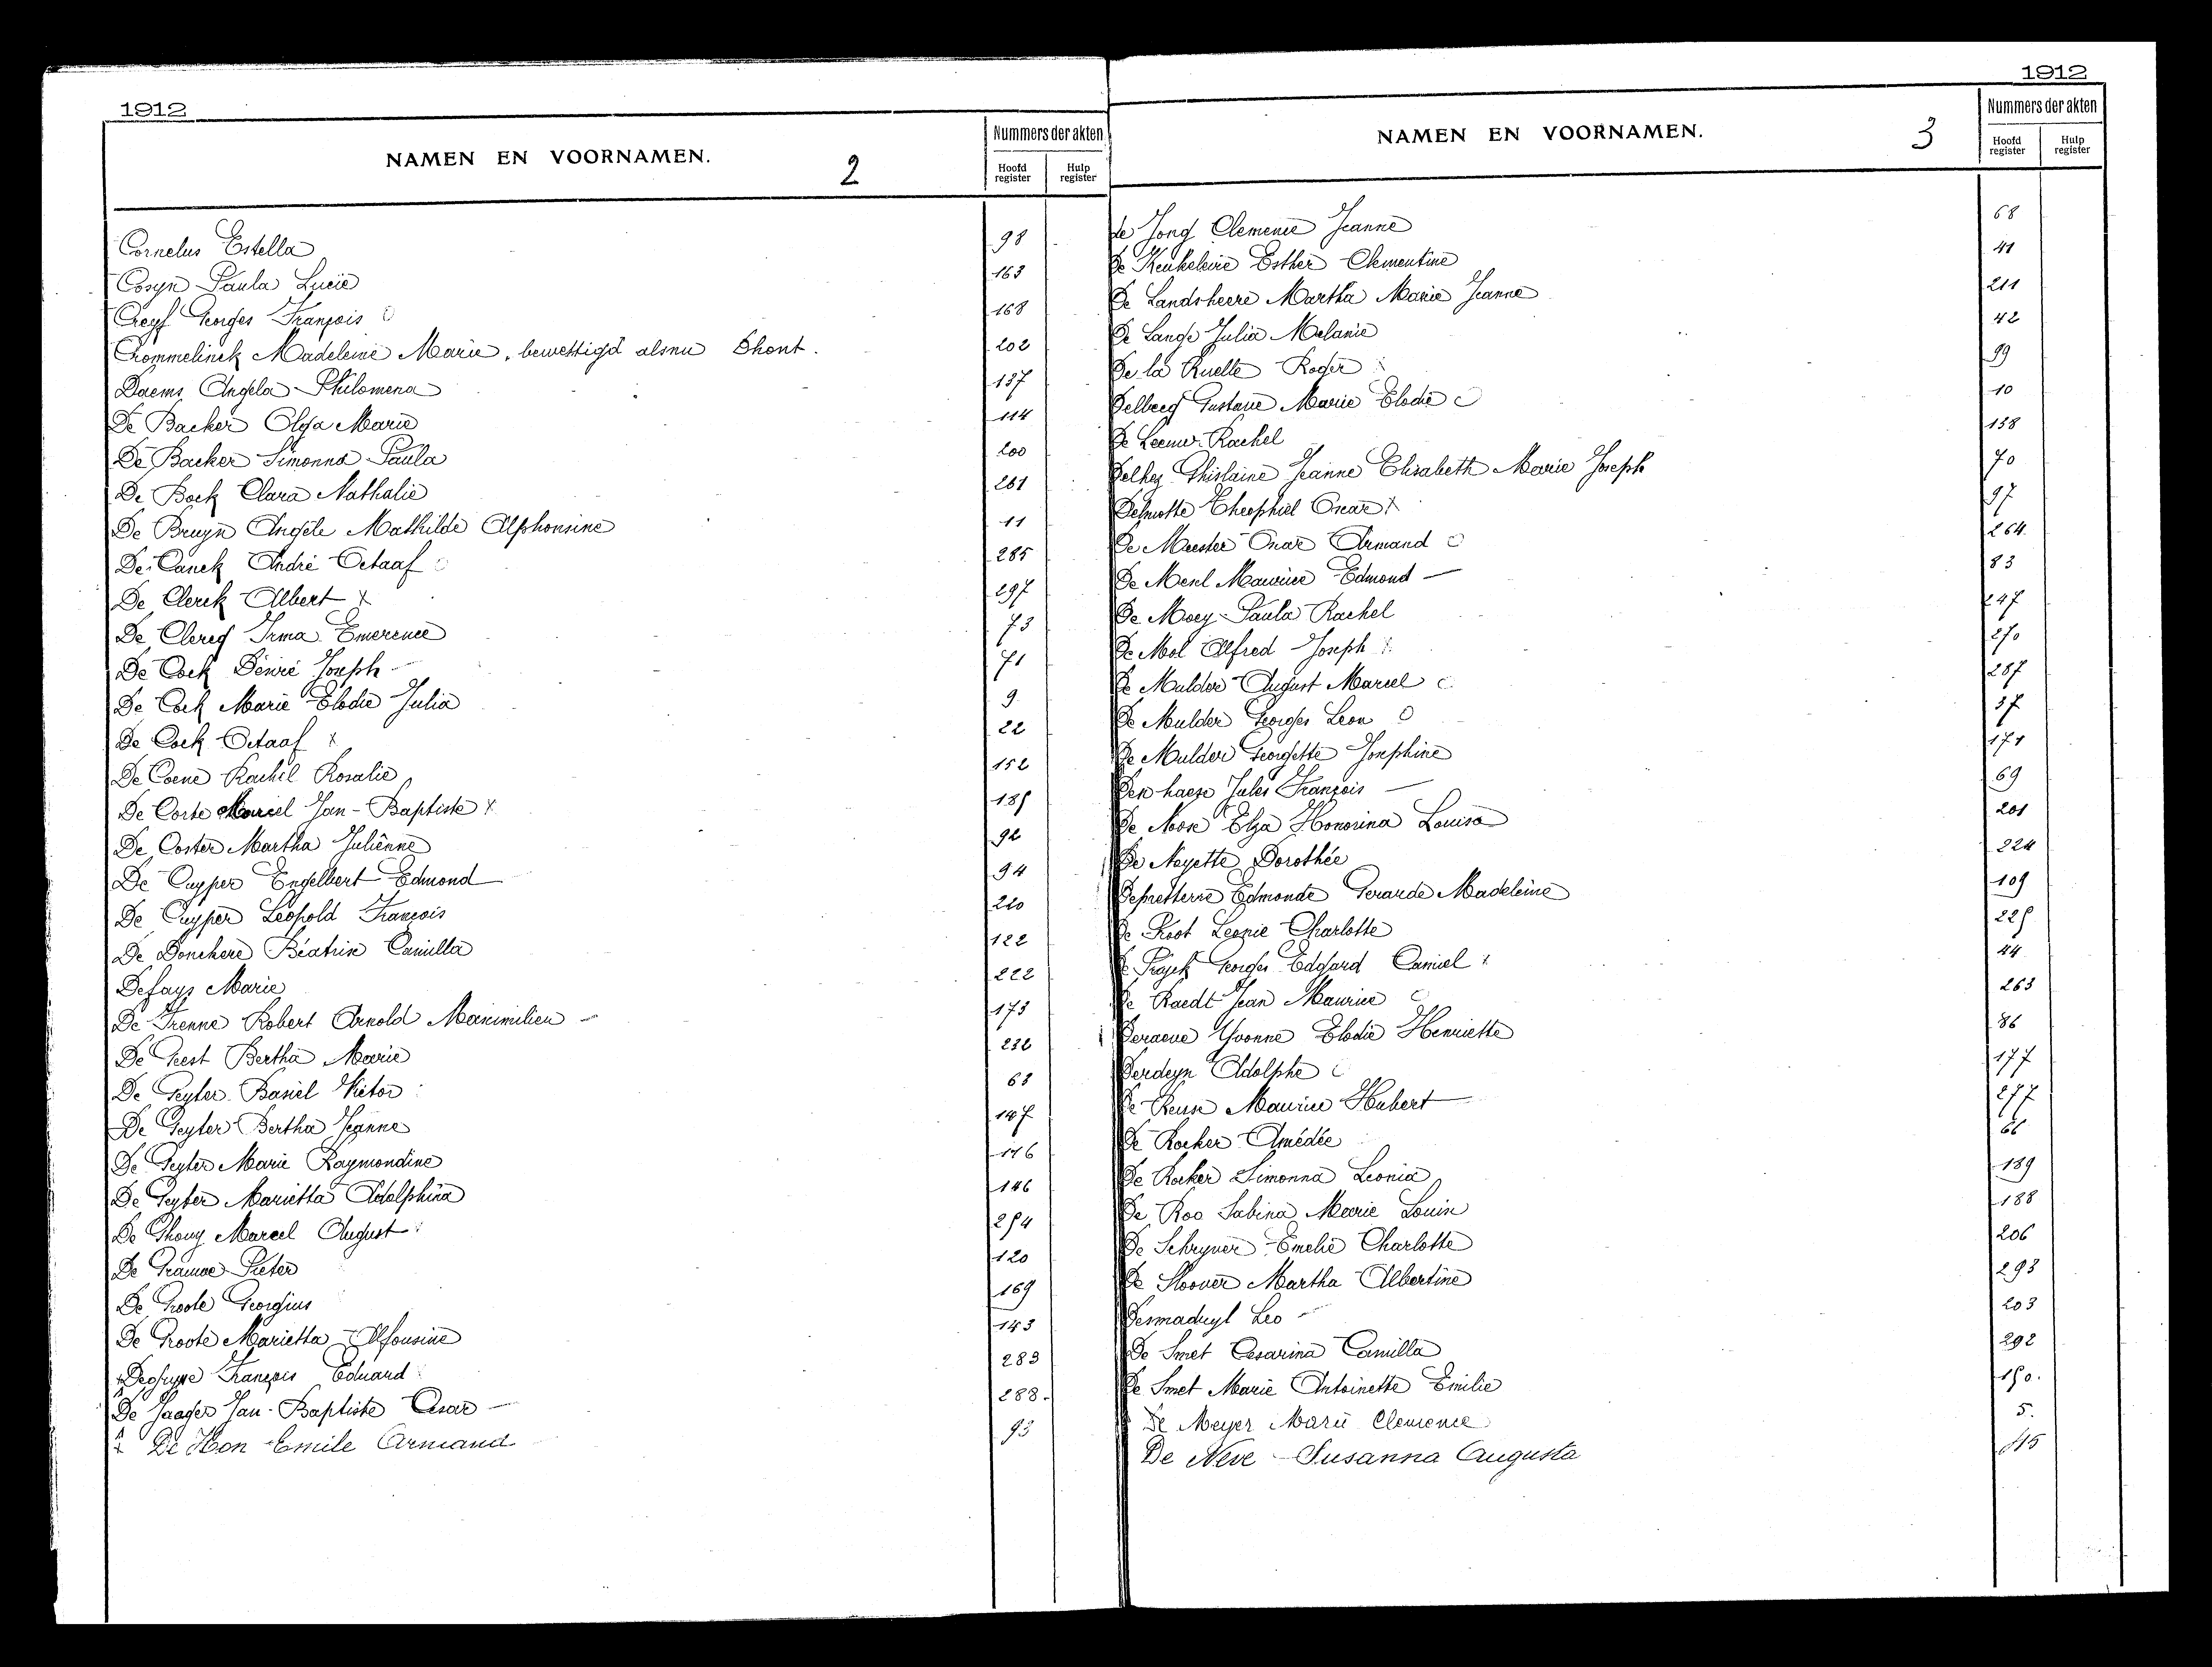 1912
NAMEN EN VOORNAMEN.
2
Nummers der akten
Hoofd register
Hulp register
Cornelus Estella 98
Cosyn Paula Lucie 163
Creyf Georges François 168
Crommelinck Madeleine Marie, bewettigd alsnu Dhont. 202
Daems Angela Philomena 137
De Backer Olga Marie 114
De Backer Simonna Paula 200
De Bock Clara Nathalie 261
De Bruyn Angèle Mathilde Alphonsine 11
De Canck André Octaaf 285
De Clerck Albert 297
De Clercq Irma Emerence 73
De Cock Désiré Joseph 71
De Cock Marie Elodie Julia 9
De Cock Octaaf 22
De Coene Rachel Rosalie 152
De Corte Marcel Jan-Baptiste
De Coster Martha Juliènne 92
De Cuyper Engelbert Edmond 94
De Cuyper Leopold François 220
De Donckere Béatrix Camilla 122
Defays Marie 222
De Frenne Robert Arnold Maximilien 173
De Geest Bertha Marie 232
De Geyter Basiel Victor 63
De Geyter Bertha Jeanne 147
De Geyter Marie Raymondine 176
De Geyter Marietta Adolphina 146
De Ghouy Marcel August 254
De Graauwe Pieter 120
De Groote Georgius 169
De Groote Marietta Alfonsine 143
François Eduard 283
De Jaager Jan-Baptiste Cesar 288.
De Hon Emile Armand 93
1912
NAMEN EN VOORNAMEN.
3
Nummers der akten
Hoofd register
Hulp register
de Jong Clemence Jeanne 68
De Keukeleire Esther Clementine 41
De Landsheere Martha Marie Jeanne 211
De Lange Julia Melanie 42
De la Ruelle Roger 99
Gustave Marie Elodie 10
De Leeuw Rachel 138
Delhez Ghislaine Jeanne Elisabeth Marie Joseph 70
Delmotte Theophiel Oscar 97
De Meester Oscar Armand 264
De Merl Maurice Edmond 83
De Moey Paula Rachel 247
De Mol Alfred Joseph 270
De Mulder August Marcel 287
De Mulder Georges Leon 37
De Mulder Georgette Josephine 171
Den haese Jules François 69
De Noose Elza Honorina Louisa 201
De Noyette Dorothée 224
Edmonde Gerarde Madeleine 109
De Poot Leonie Charlotte 225
De Georges Edgard Camiel 44
De Raedt Jean Maurice 263
Deraeve Yvonne Elodie Henriette 86
Derdeyn Adolphe 177
De Reuse Maurice Hubert 277
De Rocker Amédée 66
De Rocker Simonna Leonia 189
De Roo Sabina Marie Louise 188
De Schryver Emelie Charlotte 206
De Sloover Martha Albertine 293
Desmaduyl Leo 203
De Smet Cesarina Camilla 292
De Smet Marie Antoinette Emilie 150.
De Meyer Marie Clemence 5.
De Neve Susanna Augusta